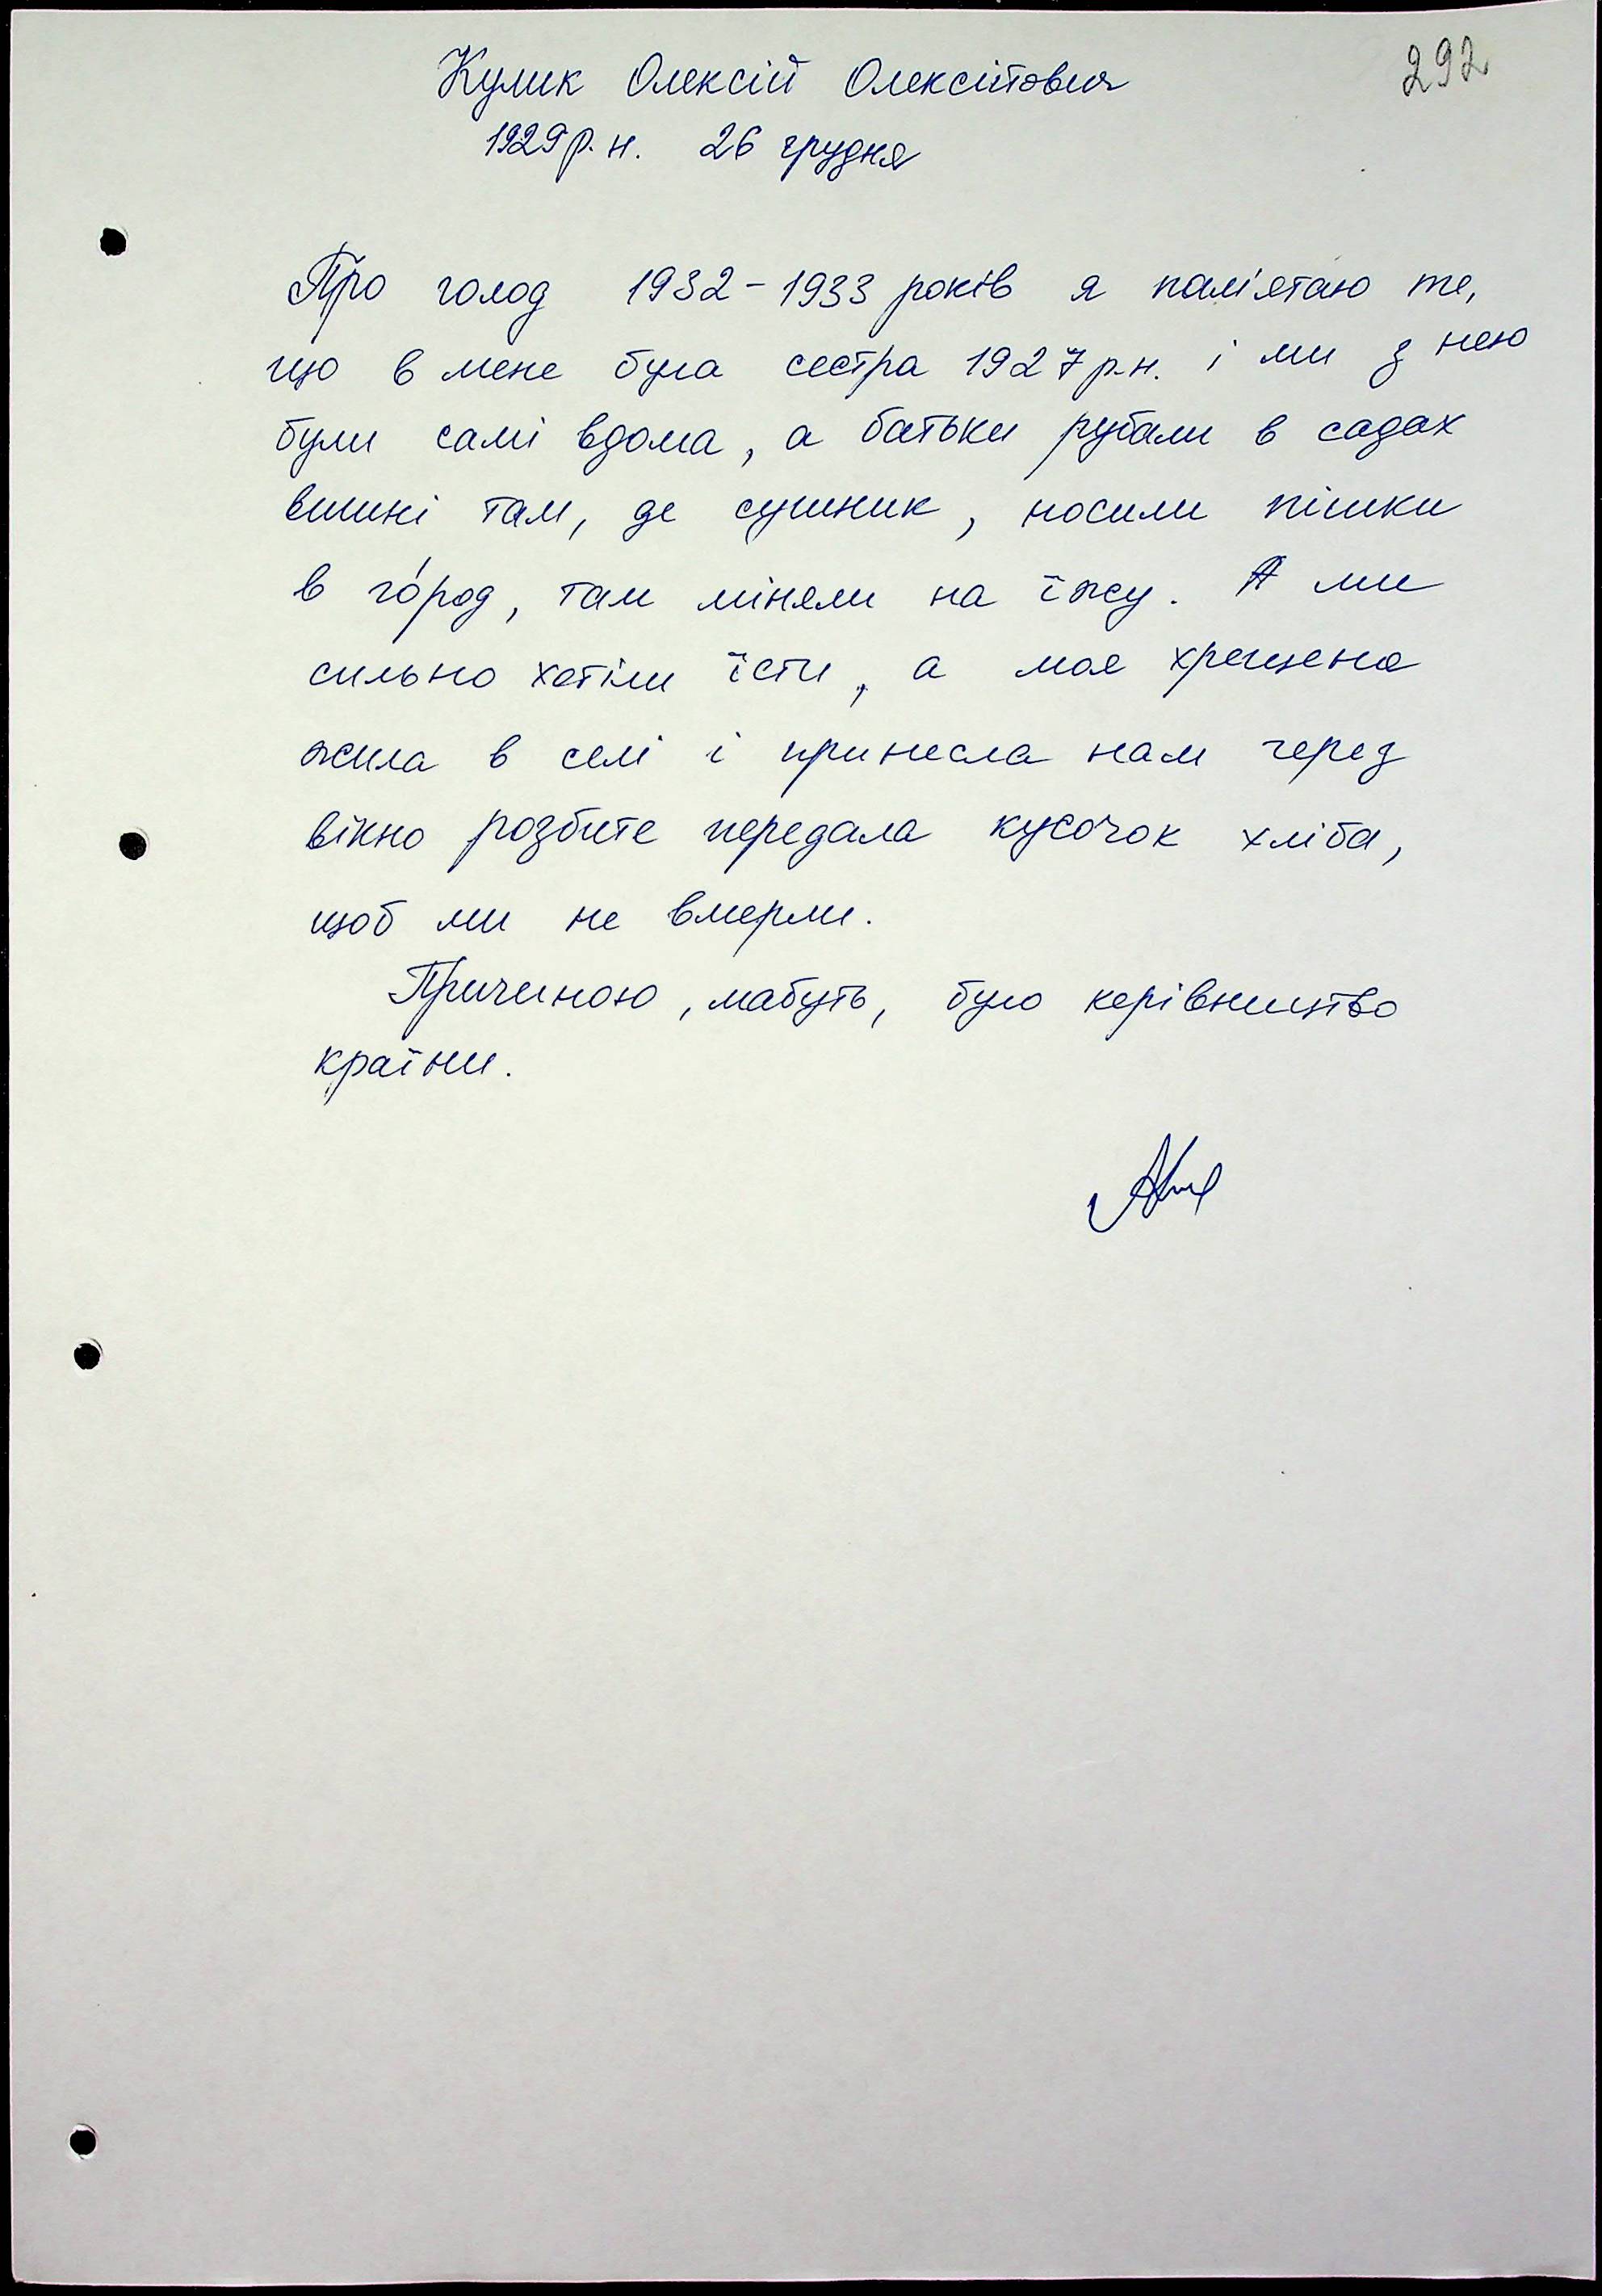 292
Кулик Олексій Олексійович
1929 р. н. 26 грудня
Про голод 1932-1933 років я пам'ятаю те,
що в мене була сестра 1927 р.н. і ми з нею
були самі вдома, а батьки рубали в садах
вишні там, де сушник, носили пішки
в го́род, там міняли на їжу. А ми
сильно хотіли їсти, а моя хрещена
жила в селі і принесла нам через
вікно розбите передала кусочок хліба,
щоб ми не вмерли.
Причиною, мабуть, було керівництво
країни.